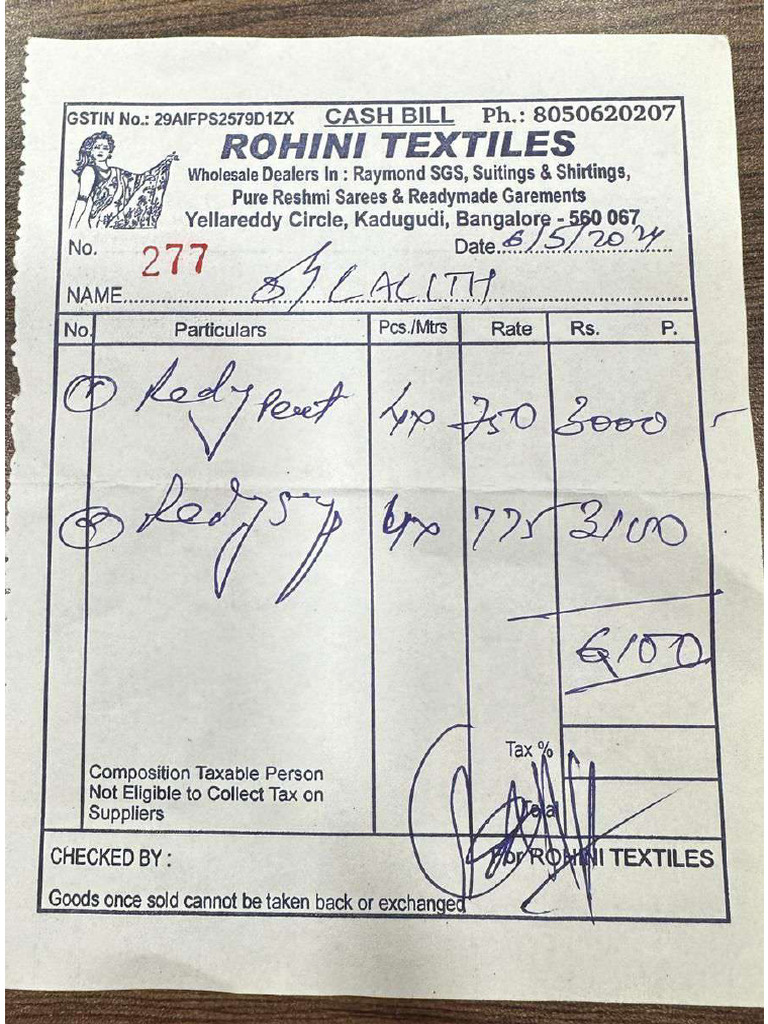 GSTIN No.: 29AIFPS2579D1ZX CASH BILL Ph.: 8050620207
ROHINI TEXTILES
Wholesale Dealers In : Raymond SGS, Suitings & Shirtings,
Pure Reshmi Sarees & Readymade Garements
Yellareddy Circle, Kadugudi, Bangalore - 560 067
No. 277 Date 6/5/2024
NAME LALITH
No. Particulars Pcs./Mtrs Rate Rs. P.
1 Redy Pent 4x 750 3000
2 Redy 4x 775 3100
6100
Tax %
Composition Taxable Person
Not Eligible to Collect Tax on
Suppliers
Total
CHECKED BY : For ROHINI TEXTILES
Goods once sold cannot be taken back or exchanged